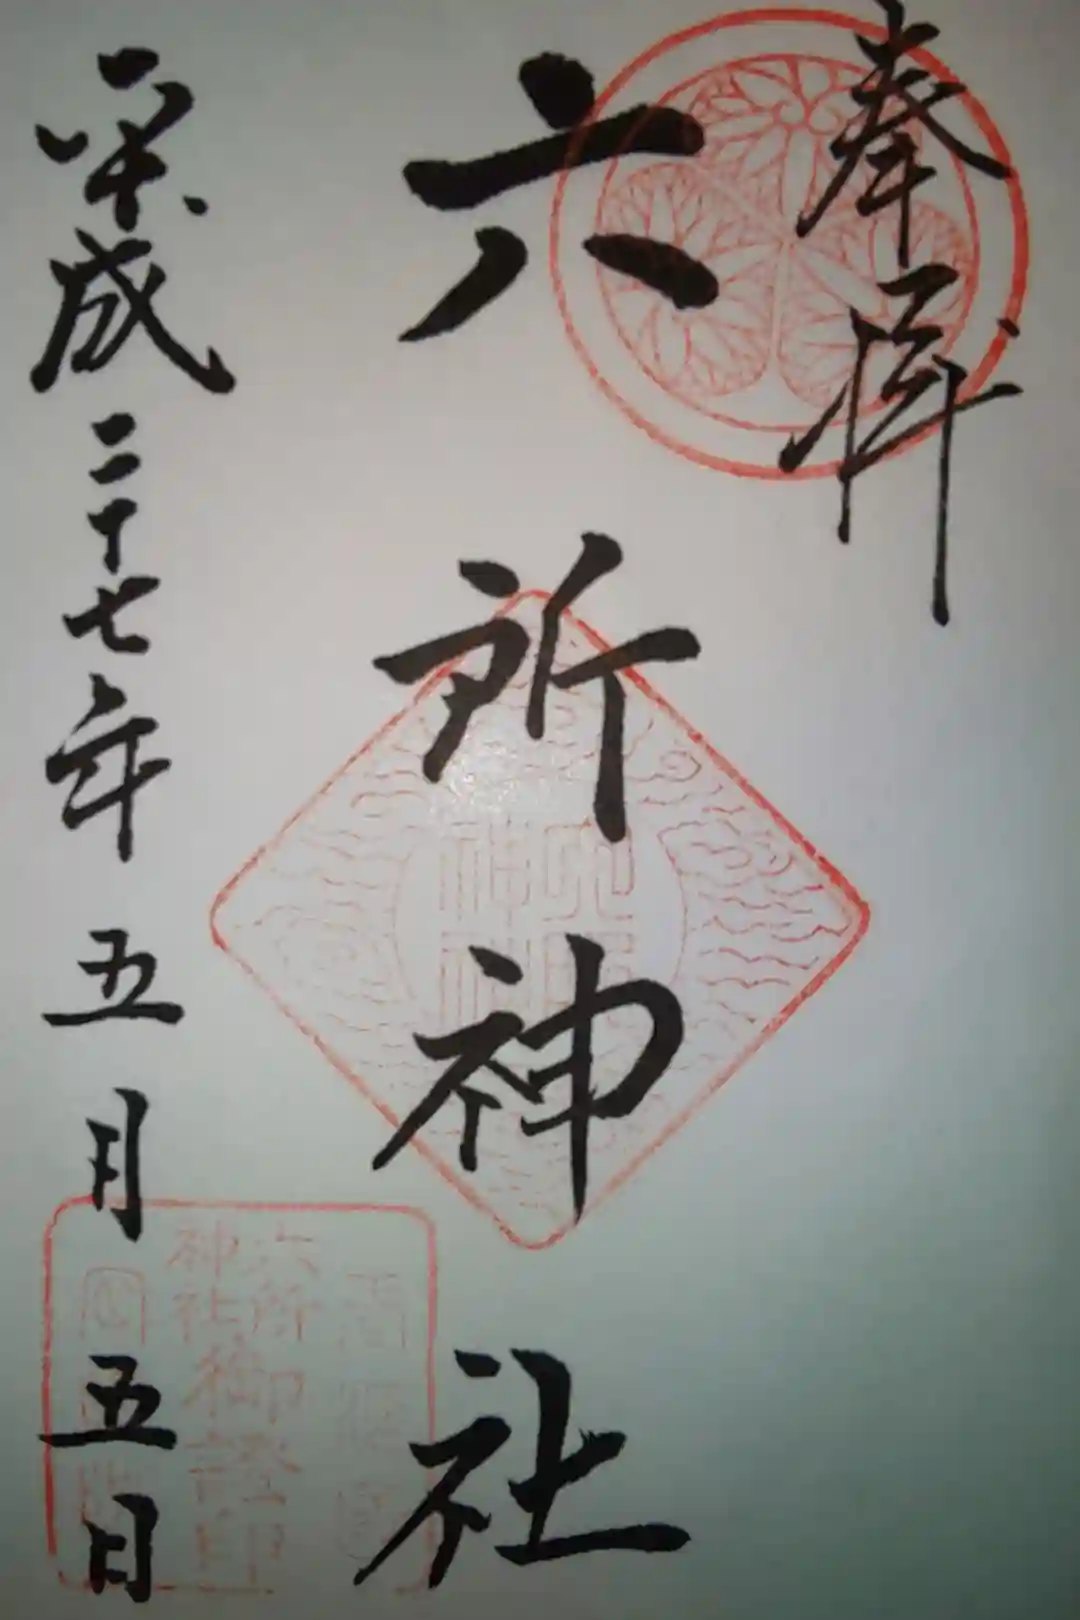 奉拝
六所神社
平成二十七年五月五日
六所
神社
御證印